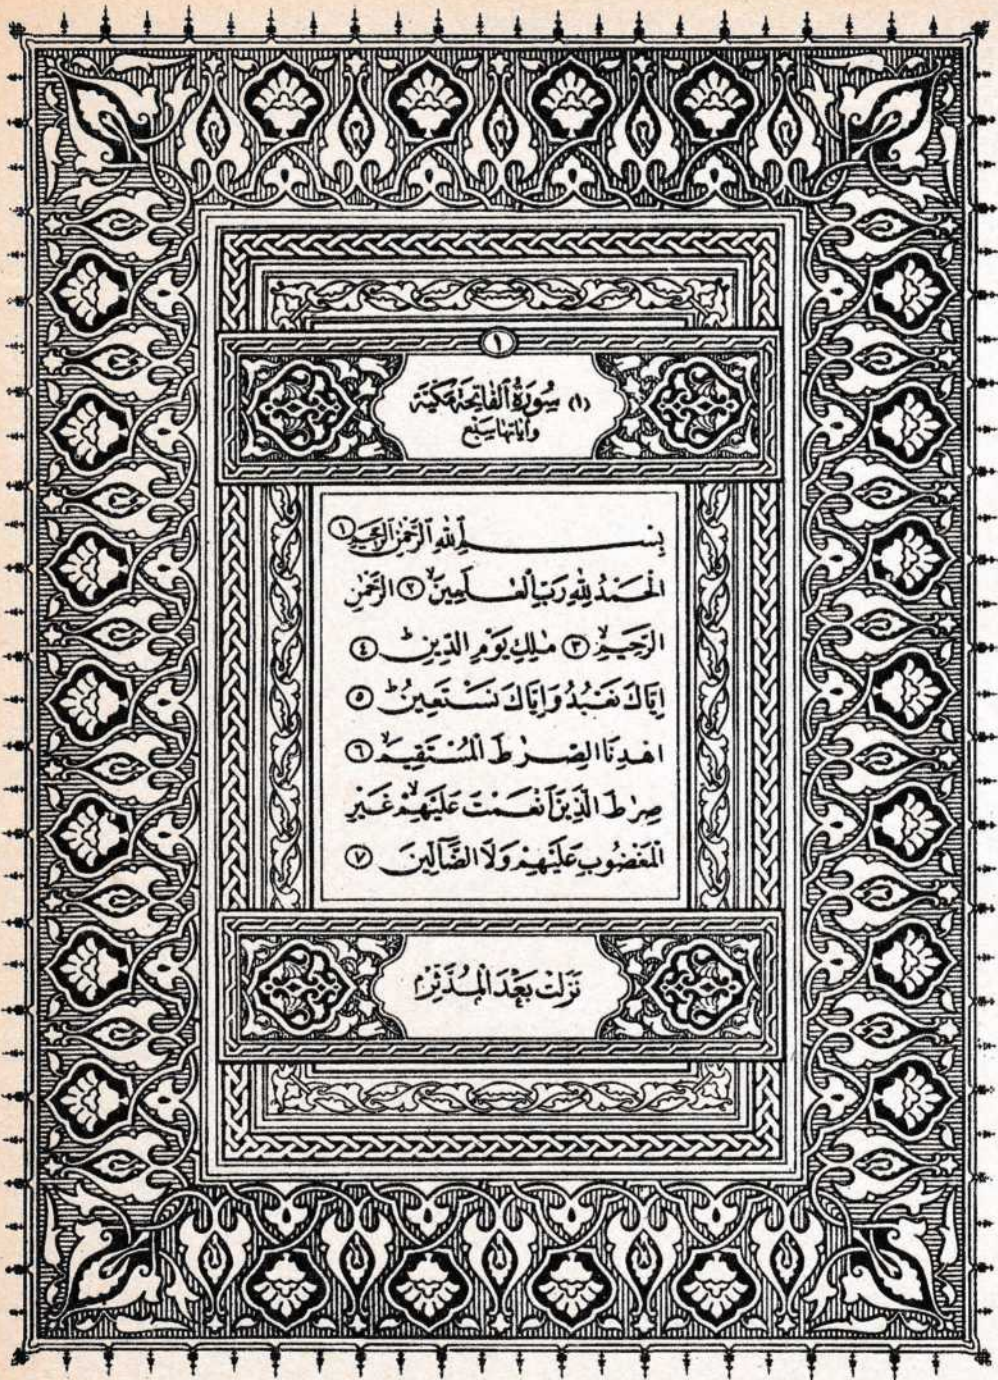 ١
(١) سُورَةُ ٱلْفَاتِحَةِ مَكِّيَّة
وآياتها سَبْع
بِسْمِ ٱللَّهِ ٱلرَّحْمٰنِ ٱلرَّحِيمِ ١
الْحَمْدُ لِلّٰهِ رَبِّ الْعٰلَمِينَ ۙ ٢ الرَّحْمٰنِ
الرَّحِيمِ ۙ ٣ مٰلِكِ يَوْمِ الدِّينِ ۗ ٤
اِيَّاكَ نَعْبُدُ وَاِيَّاكَ نَسْتَعِينُ ۗ ٥
اهْدِنَا الصِّرٰطَ الْمُسْتَقِيمَ ۙ ٦
صِرٰطَ الَّذِينَ اَنْعَمْتَ عَلَيْهِمْ ۙ غَيْرِ
الْمَغْضُوبِ عَلَيْهِمْ وَلَا الضَّآلِّينَ ٧
نَزَلَتْ بَعْدَ الْمُدَّثِّرْ